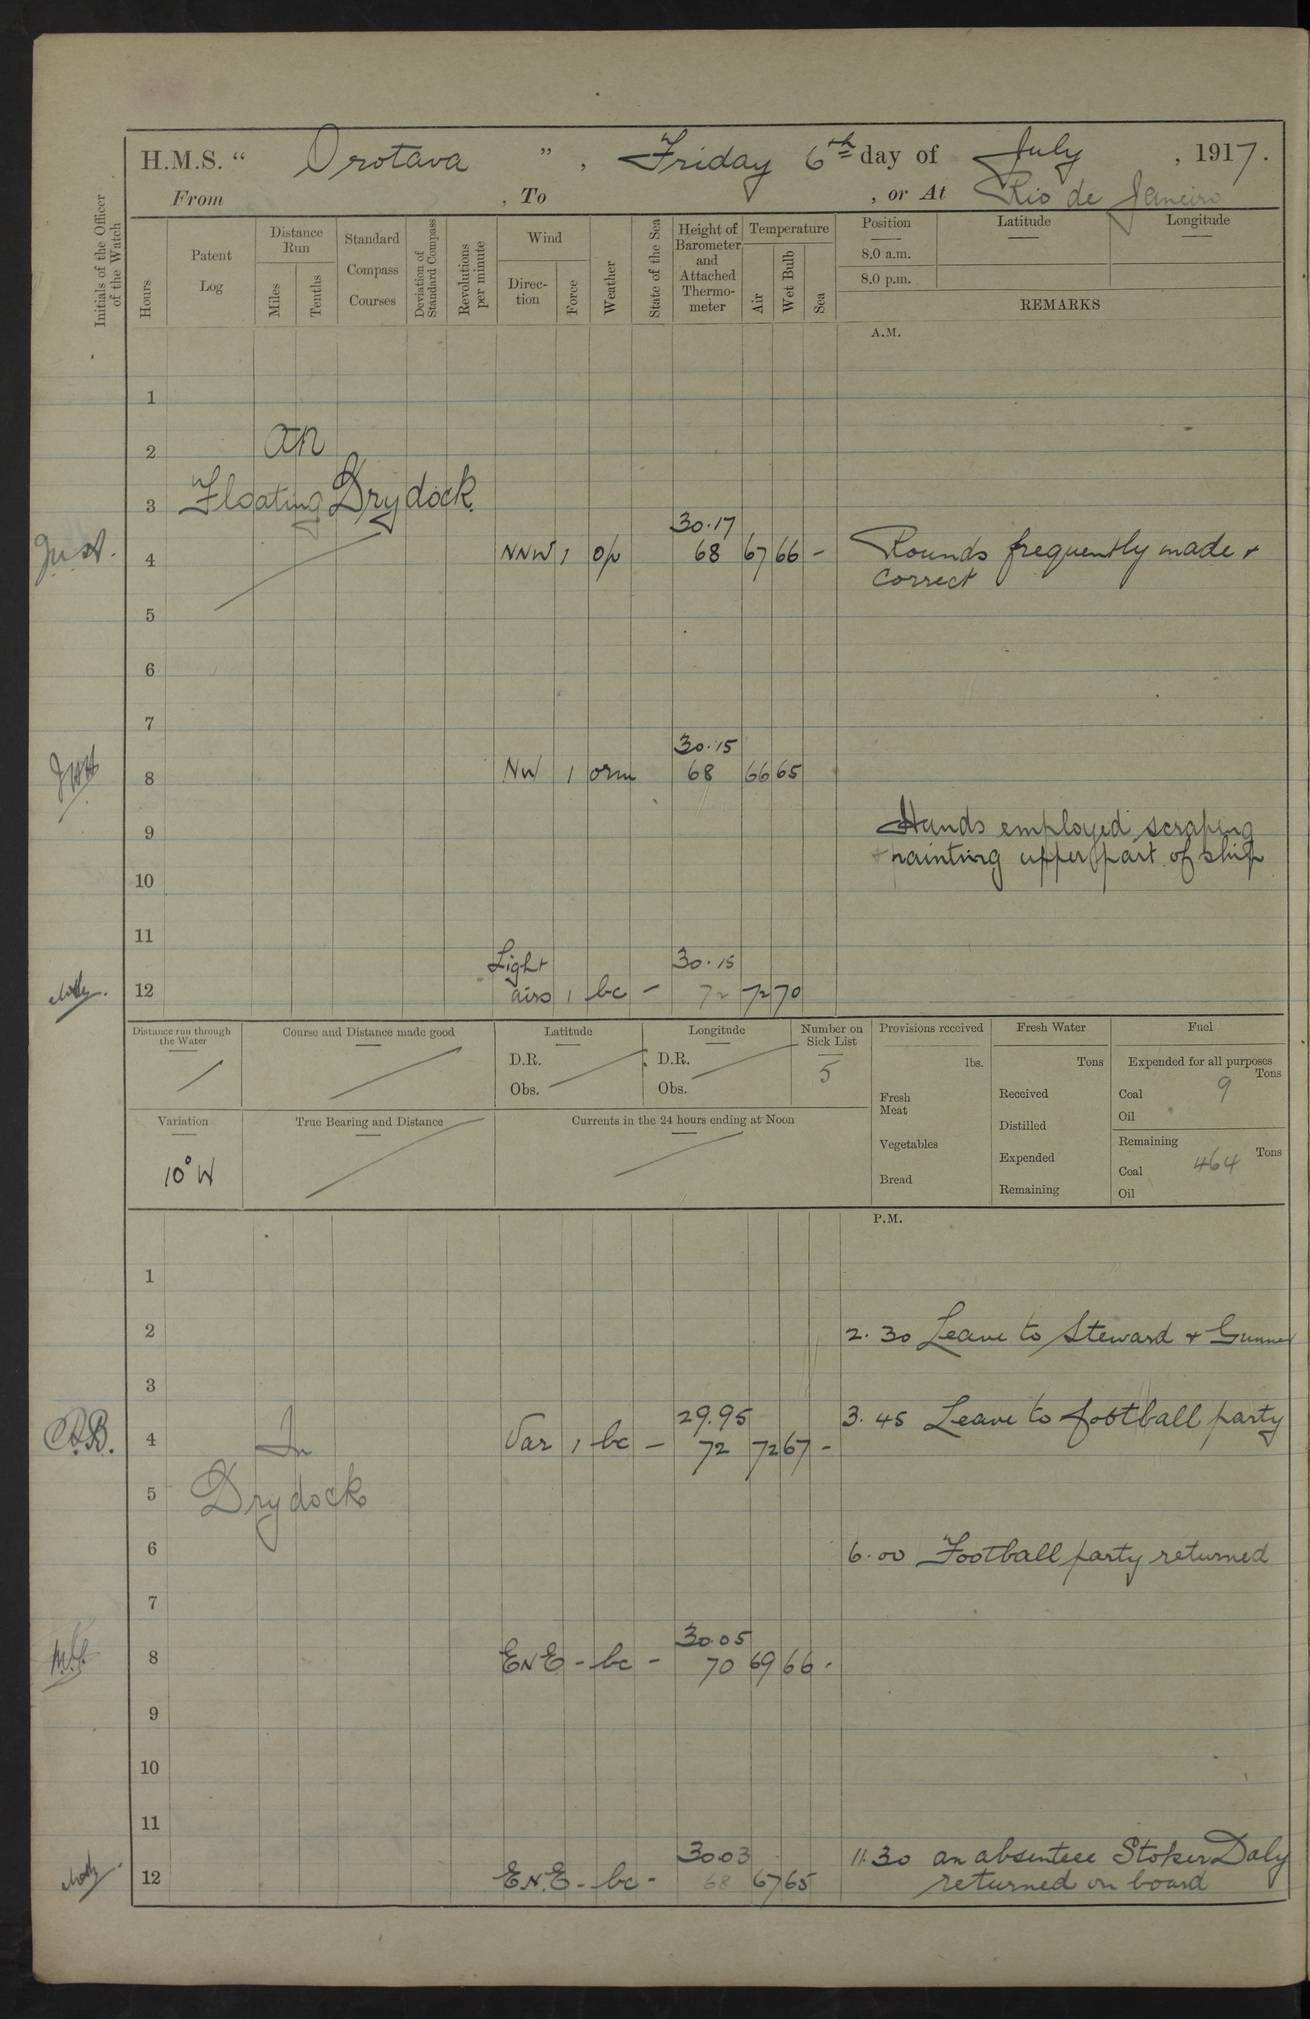 H.M.S. “ Orotava ” , Friday 6th day of July , 1917.
From , To , or At Rio de Janeiro
Initials of the Officer of the Watch
Hours
Patent Log
Distance Run
Miles
Tenths
Standard Compass Courses
Deviation of Standard Compass
Revolutions per minute
Wind
Direction
Force
Weather
State of the Sea
Height of Barometer and Attached Thermometer
Temperature
Air
Wet Bulb
Sea
Position Latitude Longitude
8.0 a.m.
8.0 p.m.
REMARKS
A.M.
1
2
3 Floating Dry dock
30.17
4 NNW 1 op 68 67 66 - Rounds frequently made +
correct
5
6
7
30.15
8 NW 1 orm 68 66 65
9 Hands employed scraping
+ painting upper part of ship
10
11
Light 30.15
12 airs 1 bc - 72 72 70
Distance run through the Water
Course and Distance made good
Latitude
D.R.
Obs.
Longitude
D.R.
Obs.
Number on Sick List
5
Provisions received
lbs.
Fresh Meat
Vegetables
Bread
Fresh Water
Tons
Received
Distilled
Expended
Remaining
Fuel
Expended for all purposes
Tons
Coal 9
Oil
Remaining
Tons
Coal 464
Oil
Variation
10° W
True Bearing and Distance
Currents in the 24 hours ending at Noon
P.M.
1
2 2.30 Leave to Steward + Gunner
3
29.95 3.45 Leave to football party
A.B. 4 In Var 1 bc - 72 72 67 -
5 Dry dock
6 6.00 Football party returned
7
30.05
8 ENE - bc - 70 69 66 -
9
10
11
30.03 11.30 an absentee Stoker Daly
12 E.N.E - bc - 68 67 65 returned on board